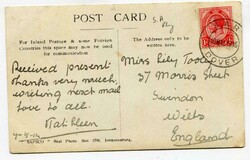 POST CARD
S.A.
For Inland Postage & some Foreign
Countries this space may now be
used for communication
The Address only to be
written here
Received present
thanks very much,
writing next mail
love to all.
Kathleen
Miss Lily Tooley
37 Morris Street
Swindon
Wilts
England